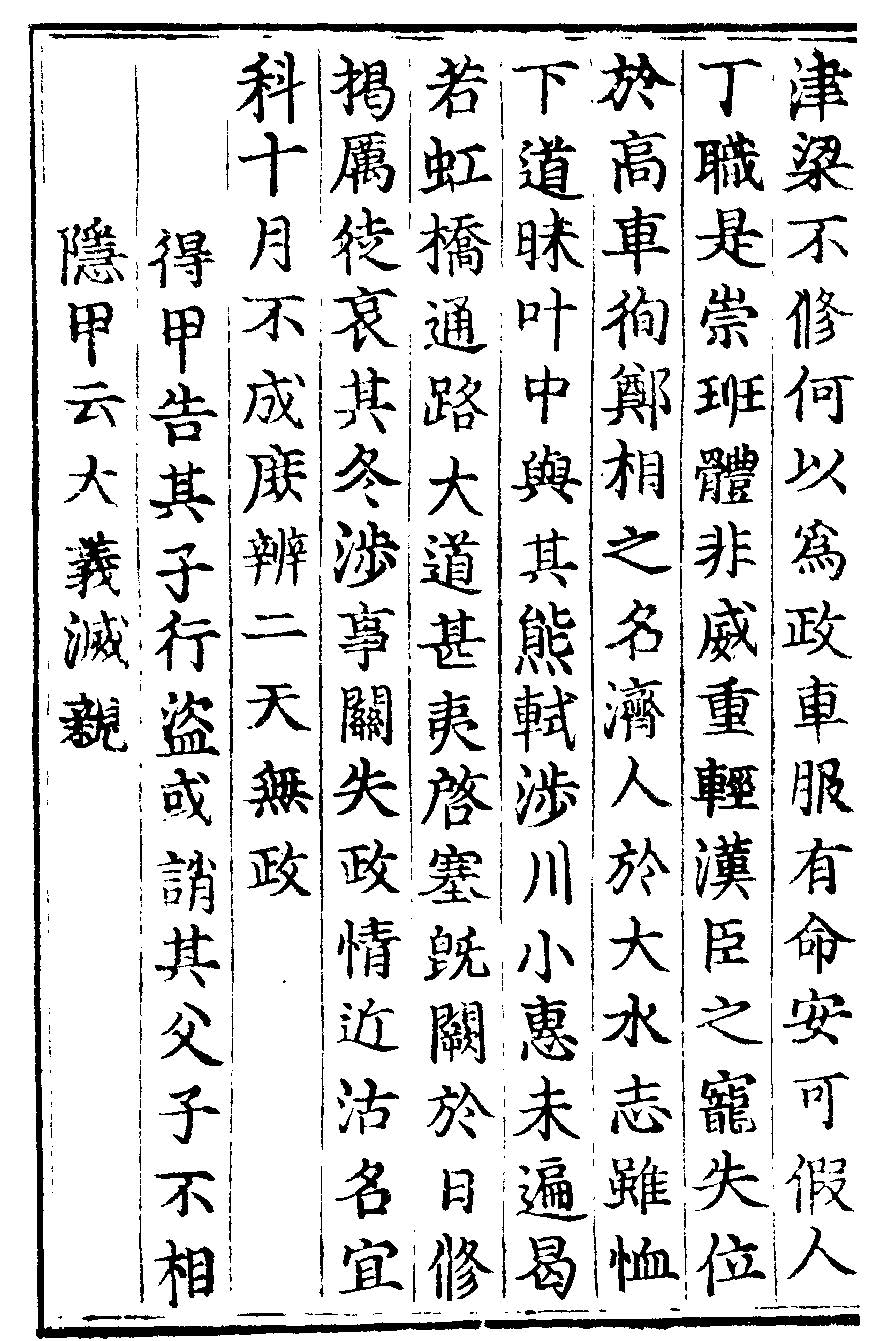 津梁不修何以為政車服有命安可假人
丁職是崇班體非威重輕漢臣之寵失位
於高車徇鄭相之名濟人於大水志雖恤
下道昧叶中與其熊軾涉川小惠未遍曷
若虹橋通路大道甚夷啓塞旣闕於日修
揭厲徒哀其冬涉事關失政情近沽名宜
科十月不成庶辨二天無政
得甲告其子行盜或誚其父子不相
隱甲云大義滅親